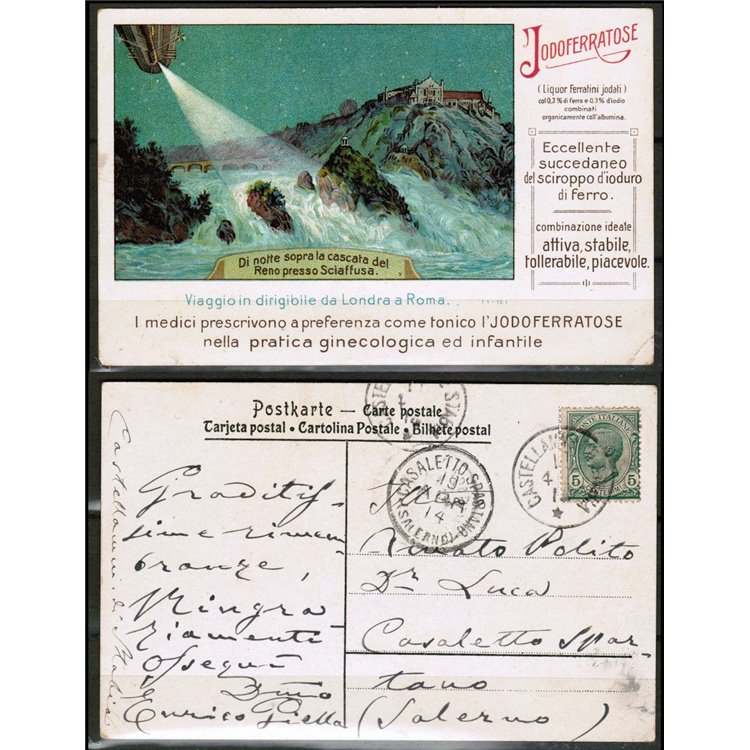 JODOFERRATOSE
(Liquor Ferratini jodati)
col 0,3 % di ferro e 0,3 % d'iodio
combinati
organicamente coll'albumina.
Eccellente
succedaneo
del sciroppo d'ioduro
di ferro.
combinazione ideale
attiva, stabile,
tollerabile, piacevole.
Di notte sopra la cascata del
Reno presso Sciaffusa.
Viaggio in dirigibile da Londra a Roma.
I medici prescrivono a preferenza come tonico l'JODOFERRATOSE
nella pratica ginecologica ed infantile
Postkarte — Carte postale
Tarjeta postal • Cartolina Postale • Bilhete postal
POSTE ITALIANE
5
5
CASALETTO SPARTANO
(SALERNO)
14
Castellammare di Stabia
Graditis-
sime rimem
branze,
Ringra
ziamenti
Ossequi
Enrico
Polito
Dr Luca
Casaletto Spar-
tano
(Salerno)